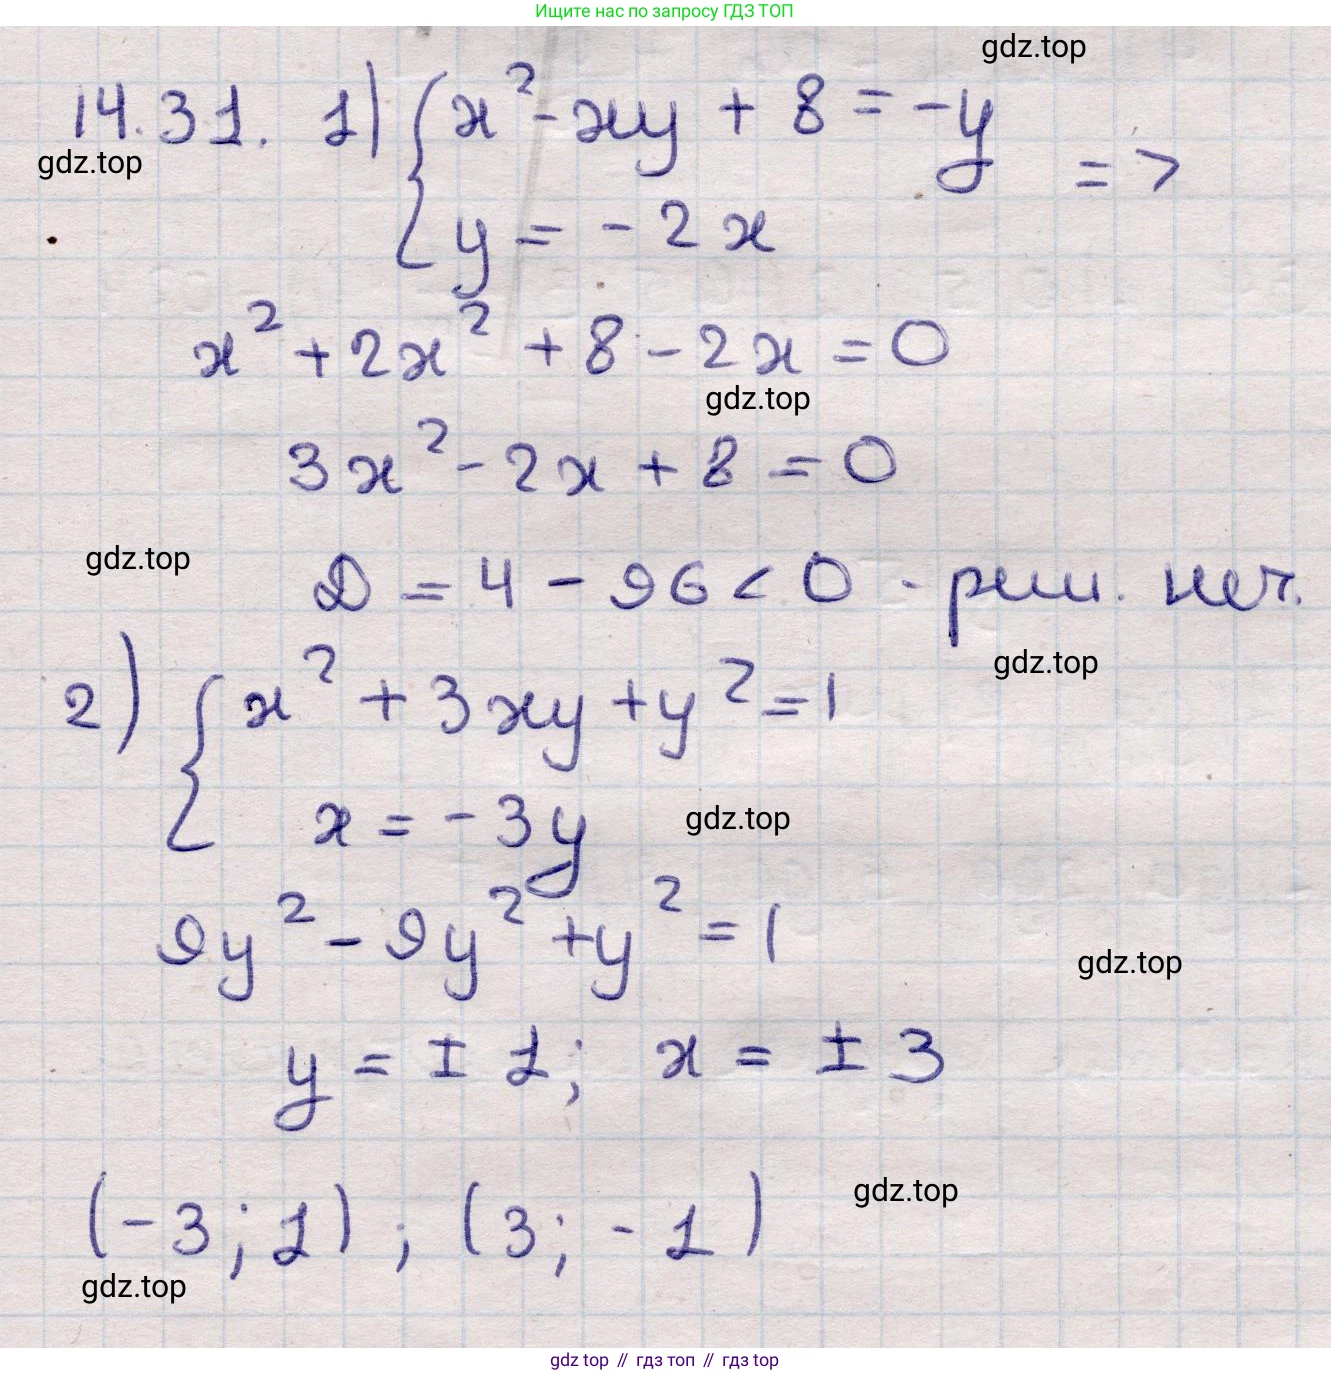 Ищите нас по запросу ГДЗ ТОП
gdz.top
14.31. 1) { x² - xy + 8 = -y
gdz.top
=>
y = -2x
x² + 2x² + 8 - 2x = 0
gdz.top
3x² - 2x + 8 = 0
gdz.top
D = 4 - 96 < 0 - реш. нет.
gdz.top
2) { x² + 3xy + y² = 1
x = -3y
gdz.top
9y² - 9y² + y² = 1
gdz.top
y = ± 1; x = ± 3
gdz.top
(-3; 1) ; (3; -1)
gdz.top
gdz top // гдз топ // gdz top